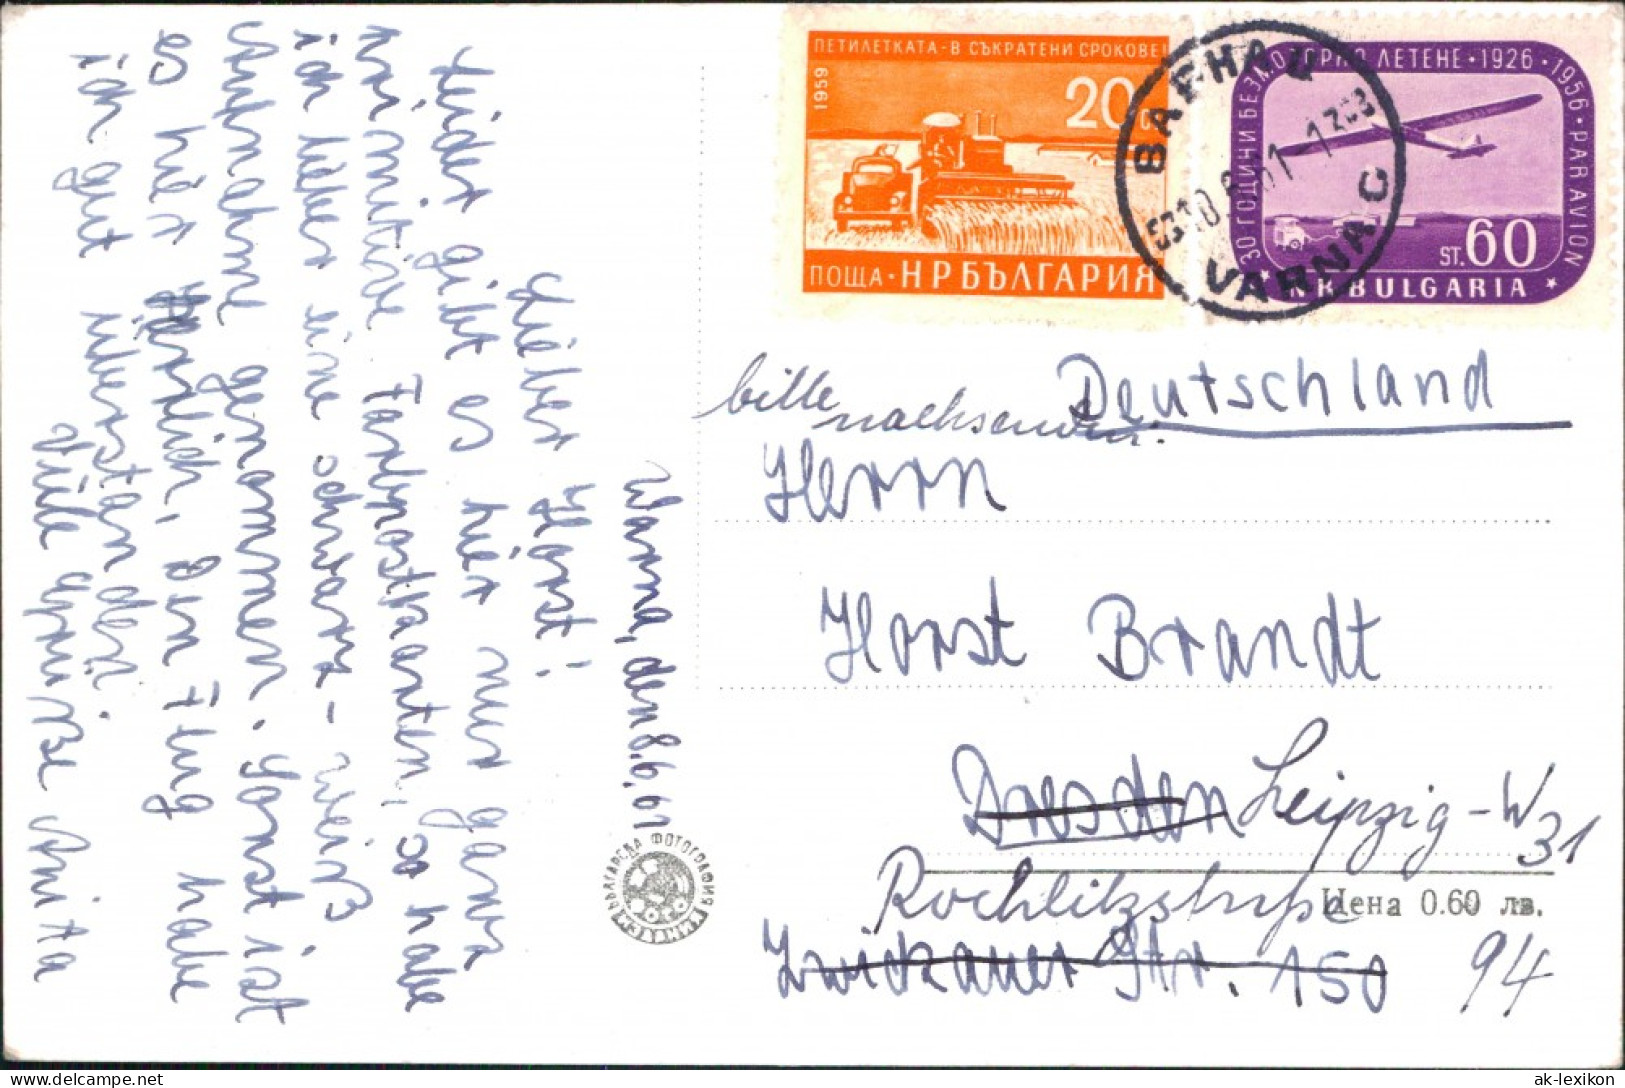 Warna, den 8.6.61
Lieber Horst!
Leider gibt es hier nur ganz
primitive Farbpostkarten, so habe
ich lieber eine schwarz-weiß
Aufnahme genommen. Sonst ist
es hier herrlich, den Flug habe
ich gut überstanden.
Viele Grüße Anita
ПЕТИЛЕТКАТА-В СЪКРАТЕНИ СРОКОВЕ!
1959
20
ПОЩА · НРБЪЛГАРИЯ
30 ГОДИНИ БЕЗМОТОРНО ЛЕТЕНЕ · 1926 · 1956 · PAR AVION
ST. 60
N.R. BULGARIA
ВАРНА
VARNA C
bitte nachsenden.
Deutschland
Herrn
Horst Brandt
Dresden Leipzig-W31
Rochlitzstraße
94
Zwickauer Str. 150
Цена 0.60 лв.
БЪЛГАРСКА ФОТОГРАФИЯ
ak-lexikon